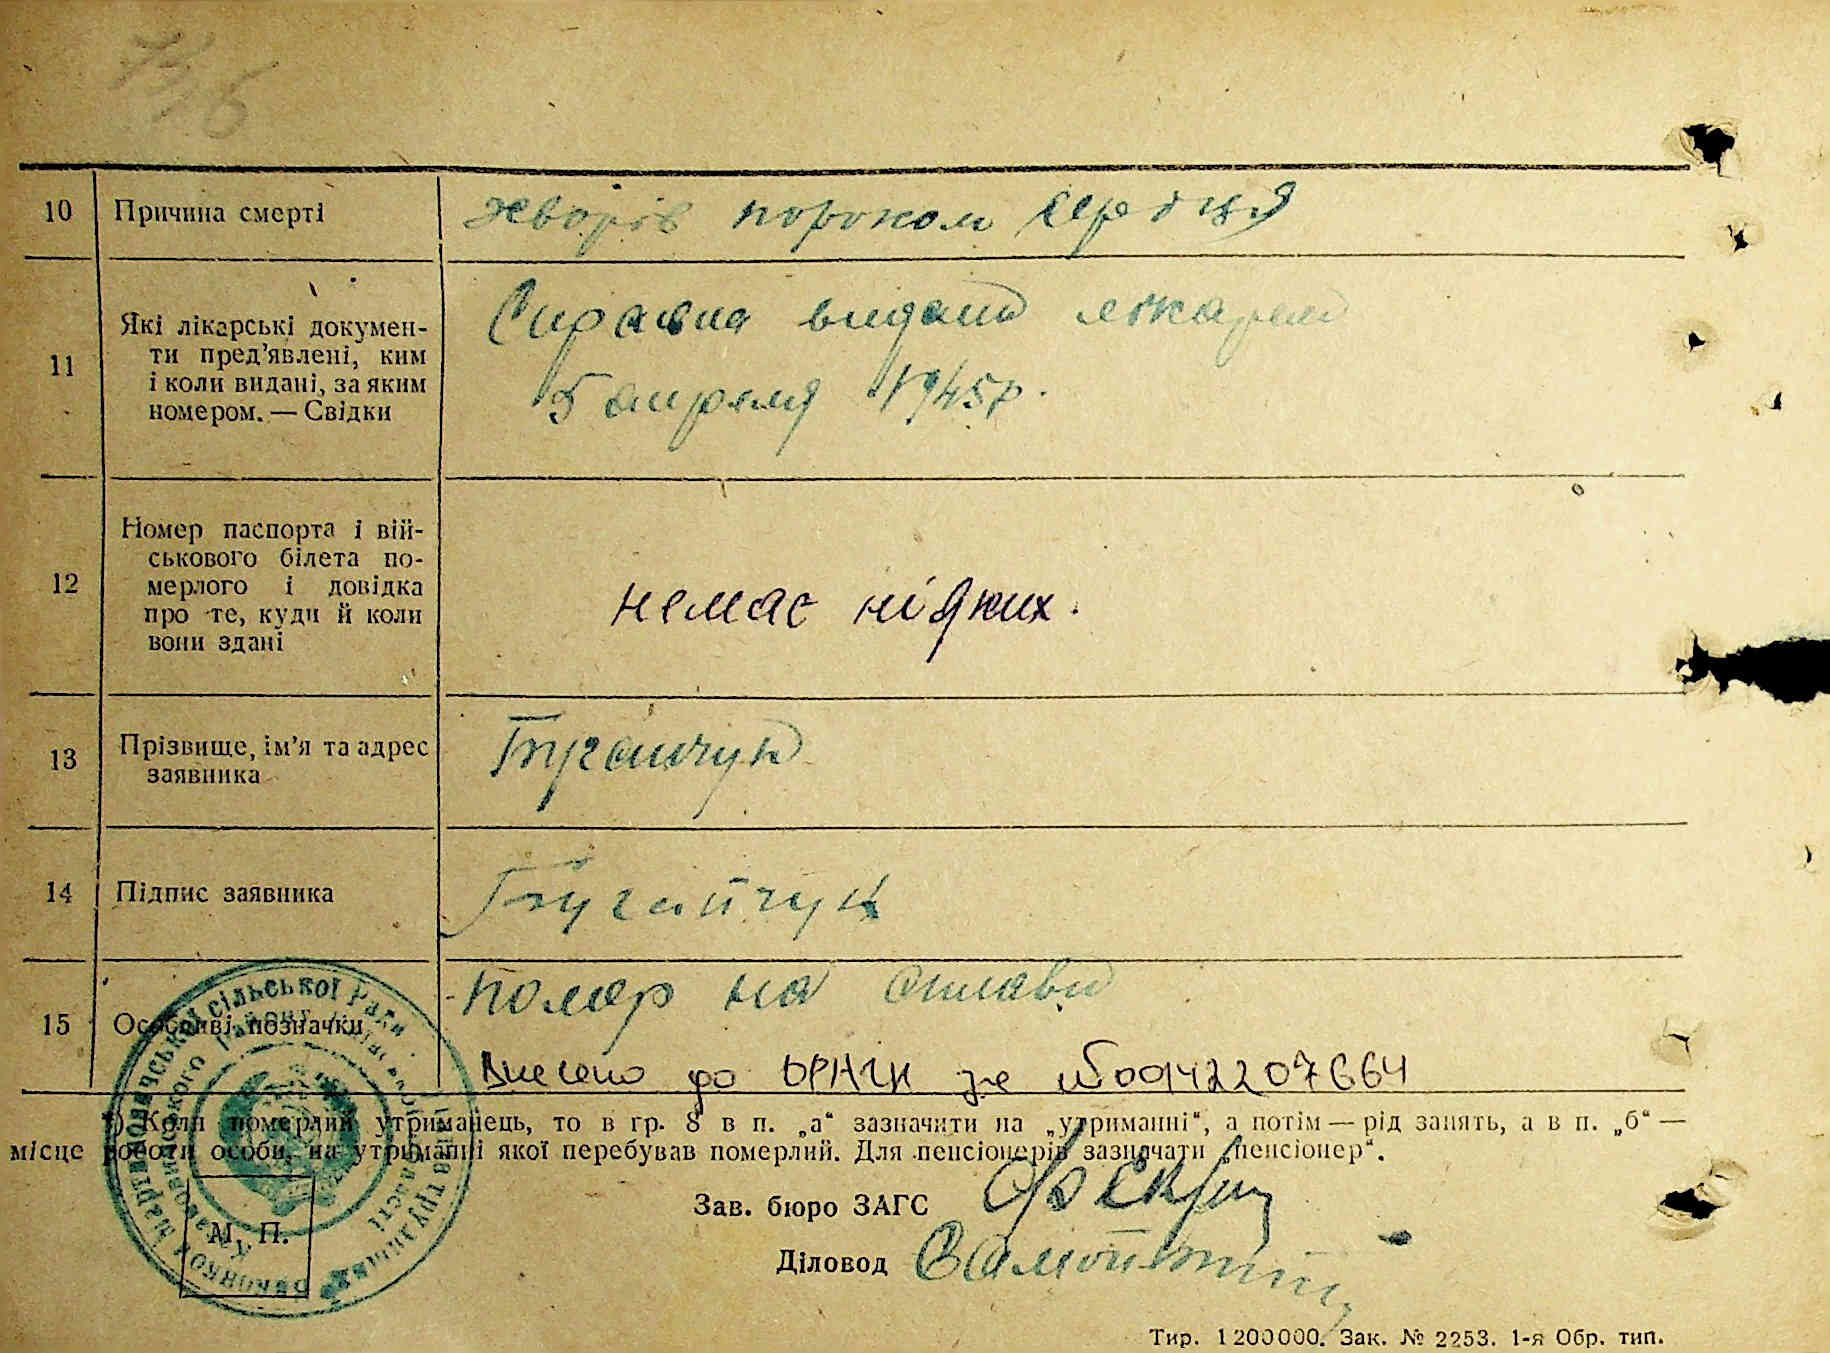 10 Причина смерті хворів пороком сердця
11 Які лікарські докумен-
ти пред’явлені, ким
і коли видані, за яким
номером. — Свідки
Справка видана лікарем
5 апреля 1945р.
12 Номер паспорта і вій-
ськового білета по-
мерлого і довідка
про те, куди й коли
вони здані
немає ніяких.
13 Прізвище, ім’я та адрес
заявника
14 Підпис заявника
15 Особливі позначки
помер на
Внесено до ДРАЦС за №00942207664
¹) Коли померлий утриманець, то в гр. 8 в п. „а“ зазначити на „утриманні“, а потім — рід занять, а в п. „б“ —
місце роботи особи, на утриманні якої перебував померлий. Для пенсіонерів зазначати „пенсіонер“.
Зав. бюро ЗАГС
Діловод
М. П.
Тир. 1200000. Зак. № 2253. 1-я Обр. тип.